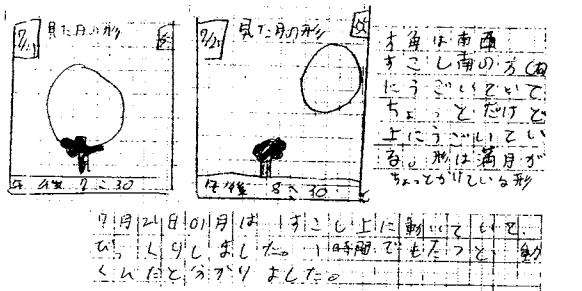 7/21
見た月の形
午後 7:30
7/21
見た月の形
午後 8:30
方角は南西
すこし南の方(右)
にうごいていて
ちょっとだけど
上にうごいてい
る。形は満月が
ちょっとかけている形
7月21日の月は すこし上に動いていて
びっくりしました。1時間でもたつと 動
くんだと分かりました。